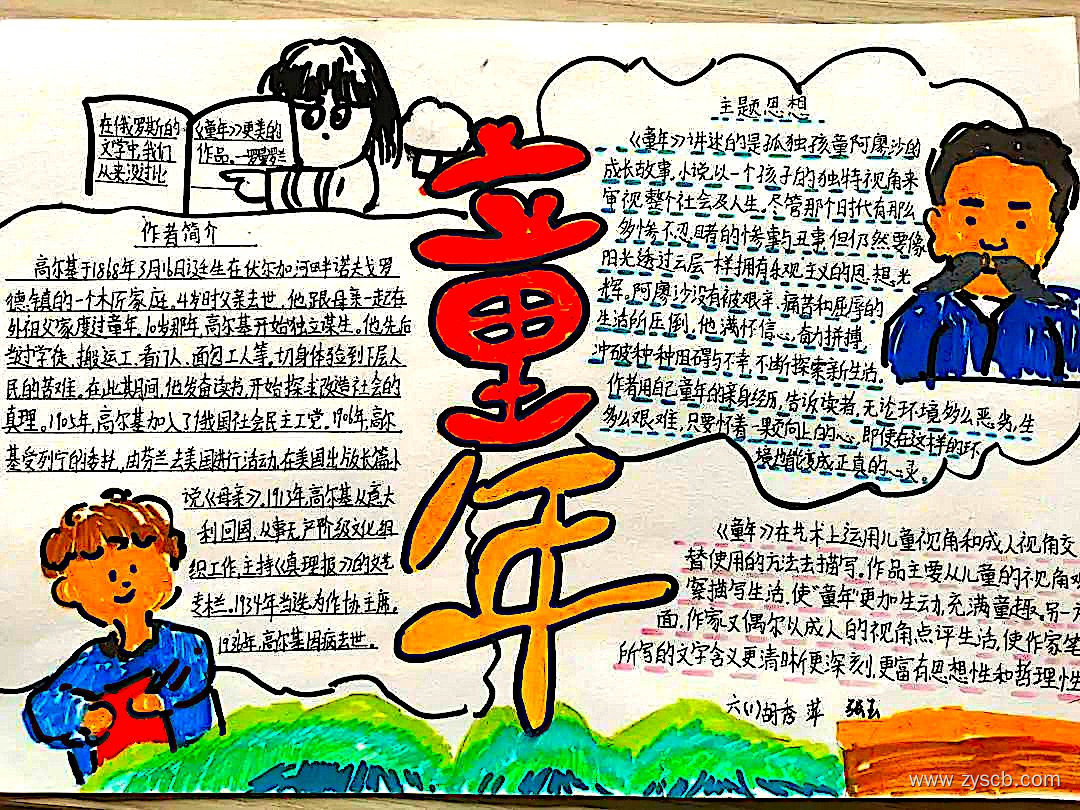 在俄罗斯的
文学中,我们
从来没过比
《童年》更美的
作品。—罗曼罗兰
童年
作者简介
高尔基于1868年3月16日诞生在伏尔加河畔诺夫戈罗
德镇的一个木匠家庭。4岁时父亲去世,他跟母亲一起在
外祖父家度过童年,10岁那年,高尔基开始独立谋生。他先后
当过学徒、搬运工、看门人、面包工人等,切身体验到下层人
民的苦难。在此期间,他发奋读书,开始探求改造社会的
真理。1905年,高尔基加入了俄国社会民主工党。1906年,高尔
基受列宁的委托,由芬兰去美国进行活动,在美国出版长篇小
说《母亲》。1913年,高尔基从意大
利回国,从事无产阶级文化组
织工作,主持《真理报》的文艺
专栏。1934年当选为作协主席。
1936年,高尔基因病去世。
主题思想
《童年》讲述的是孤独孩童阿廖沙的
成长故事,小说以一个孩子的独特视角来
审视整个社会及人生,尽管那个时代有那么
多惨不忍目者的惨事与丑事,但仍然要像
阳光透过云层一样拥有乐观主义的思想光
辉。阿廖沙没有被艰辛、痛苦和屈辱的
生活所压倒,他满怀信心,奋力拼搏,
冲破种种阻碍与不幸,不断探索新生活。
作者用自己童年的亲身经历,告诉读者,无论环境多么恶劣,生
多么艰难,只要怀着一颗向上的心,即使在这样的环
境也能变成正真的心灵。
《童年》在艺术上运用儿童视角和成人视角交
替使用的方法去描写。作品主要从儿童的视角观
察描写生活,使"童年"更加生动,充满童趣。另一方
面,作家又偶尔以成人的视角点评生活,使作家笔
所写的文字含义更清晰便深刻,更富有思想性和哲理性
六(1)胡秀苹
www.zyscb.com